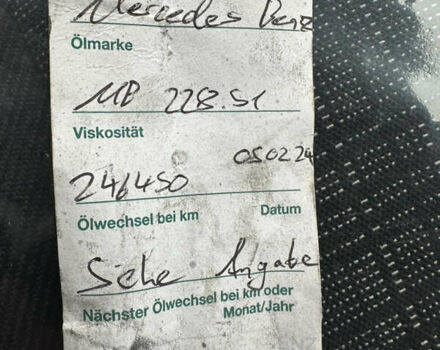 Mercedes Benz
Ölmarke
MB 228.51
Viskosität
246450 050224
Ölwechsel bei km Datum
Siehe Angabe
Nächster Ölwechsel bei km oder
Monat/Jahr